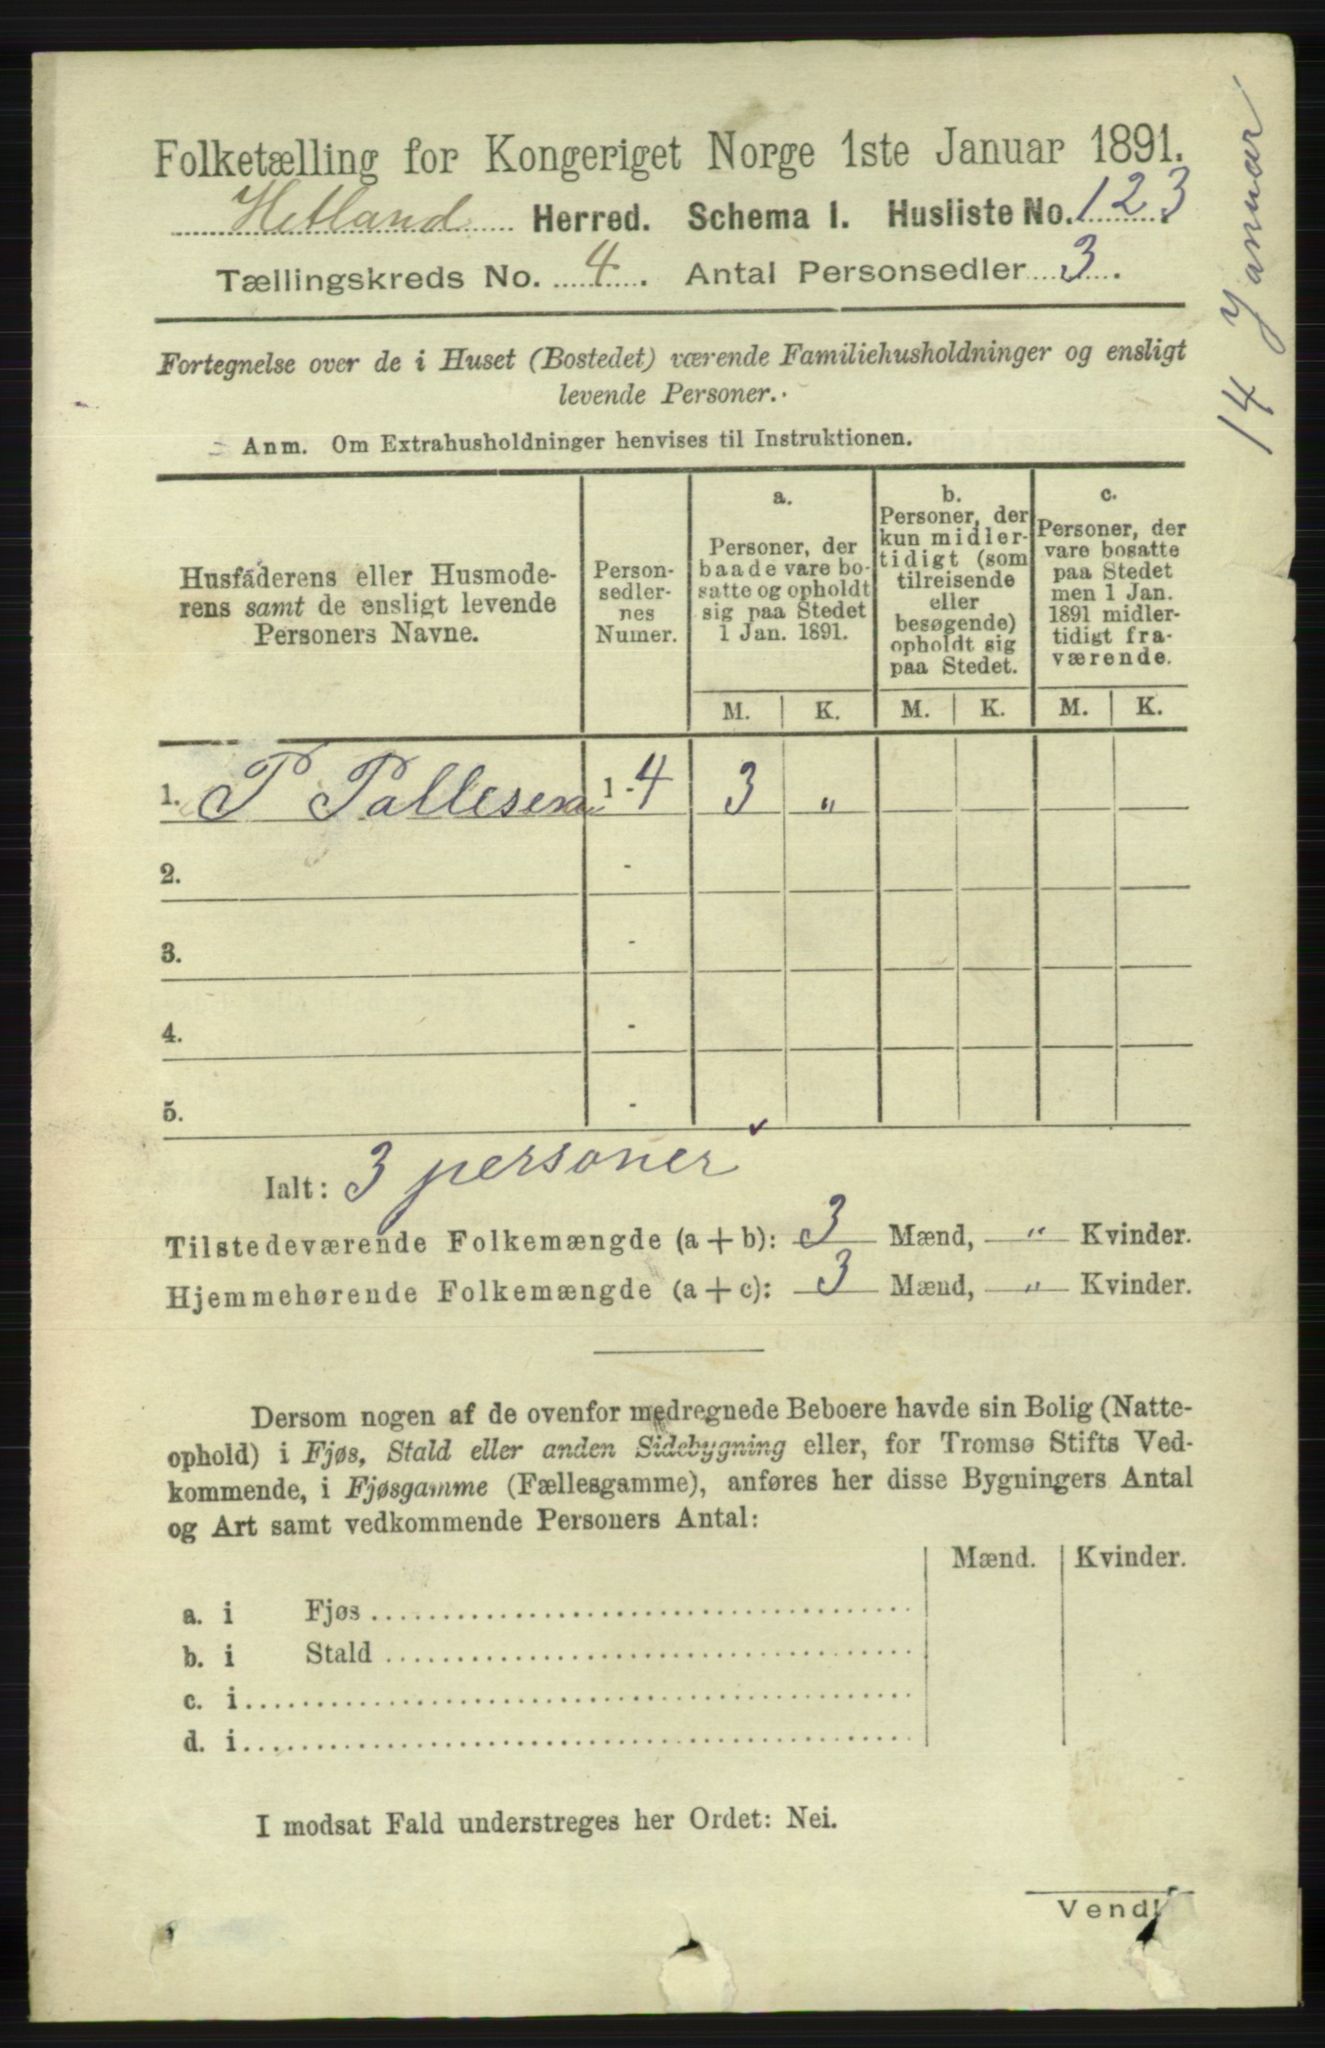 Folketælling for Kongeriget Norge 1ste Januar 1891.
Hetland Herred. Schema 1. Husliste No. 123.
Tællingskreds No. 4. Antal Personsedler 3.
14 Januar
Fortegnelse over de i Huset (Bostedet) værende Familiehusholdninger og ensligt
levende Personer.
Anm. Om Extrahusholdninger henvises til Instruktionen.
Husfaderens eller Husmode-
rens samt de ensligt levende
Personers Navne.
Person-
sedler-
nes
Numer.
a.
Personer, der
baade vare bo-
satte og opholdt
sig paa Stedet
1 Jan. 1891.
b.
Personer, der
kun midler-
tidigt (som
tilreisende
eller
besøgende)
opholdt sig
paa Stedet.
c.
Personer, der
vare bosatte
paa Stedet
men 1 Jan.
1891 midler-
tidigt fra-
værende.
M. K. M. K. M. K.
1. P Pallesen 1-4 3 "
2. -
3. -
4. -
5. -
Ialt: 3 personer
Tilstedeværende Folkemængde (a + b): 3 Mænd, " Kvinder.
Hjemmehørende Folkemængde (a + c): 3 Mænd, " Kvinder.
Dersom nogen af de ovenfor medregnede Beboere havde sin Bolig (Natte-
ophold) i Fjøs, Stald eller anden Sidebygning eller, for Tromsø Stifts Ved-
kommende, i Fjøsgamme (Fællesgamme), anføres her disse Bygningers Antal
og Art samt vedkommende Personers Antal:
Mænd. Kvinder.
a. i Fjøs
b. i Stald
c. i
d. i
I modsat Fald understreges her Ordet: Nei.
Vend!